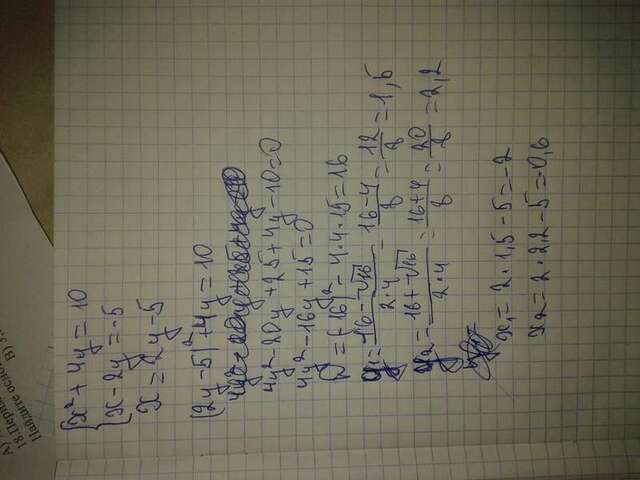 {x² + 4y = 10
{x - 2y = -5
x = 2y - 5
(2y - 5)² + 4y = 10
4y² - 20y + 25 + 4y - 10 = 0
4y² - 16y + 15 = 0
D = (-16)² - 4·4·15 = 16
y₁ = (16 - √16)/(2·4) = (16 - 4)/8 = 12/8 = 1,5
y₂ = (16 + √16)/(2·4) = (16 + 4)/8 = 20/8 = 2,2
x₁ = 2·1,5 - 5 = -2
x₂ = 2·2,2 - 5 = -0,6
А)
18.Перви
Найдите осно
В) 3